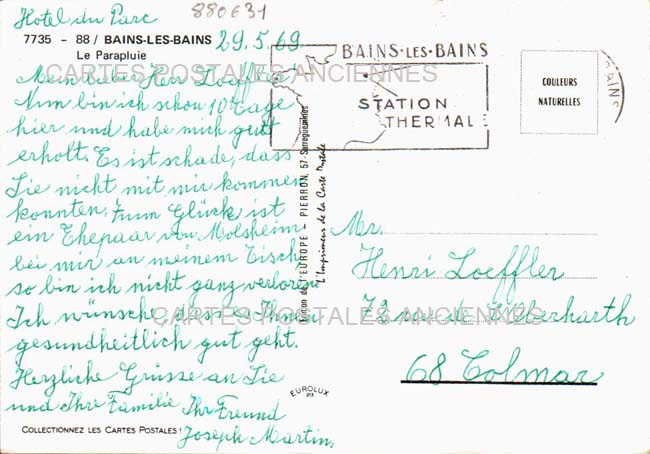 Hotel du Parc
880631
7735 - 88 / BAINS-LES-BAINS
29.5.69.
Le Parapluie
Mein lieber Herr Loeffler
Nun bin ich schon 10 Tage
hier und habe mich gutt
erholt. Es ist schade, dass
Sie nicht mit mir kommen
konnten. Zum Glück ist
ein Ehepaar von Molsheim
bei mir an meinem Tisch
so bin ich nicht ganz verloren
Ich wünsche dass es Ihnen
gesundheitlich gut geht.
Herzliche Grüsse an Sie
und Ihre Familie Ihr Freund
Joseph Martin.
COLLECTIONNEZ LES CARTES POSTALES !
BAINS-LES-BAINS
STATION
THERMALE
COULEURS
NATURELLES
BAINS
Edition de l'EUROPE - PIERRON, 57-Sarreguemines
L'Imprimeur de la Carte Postale
EUROLUX
Mr.
Henri Loeffler
rue
68 Colmar
CARTES POSTALES ANCIENNES
CARTES POSTALES ANCIENNES